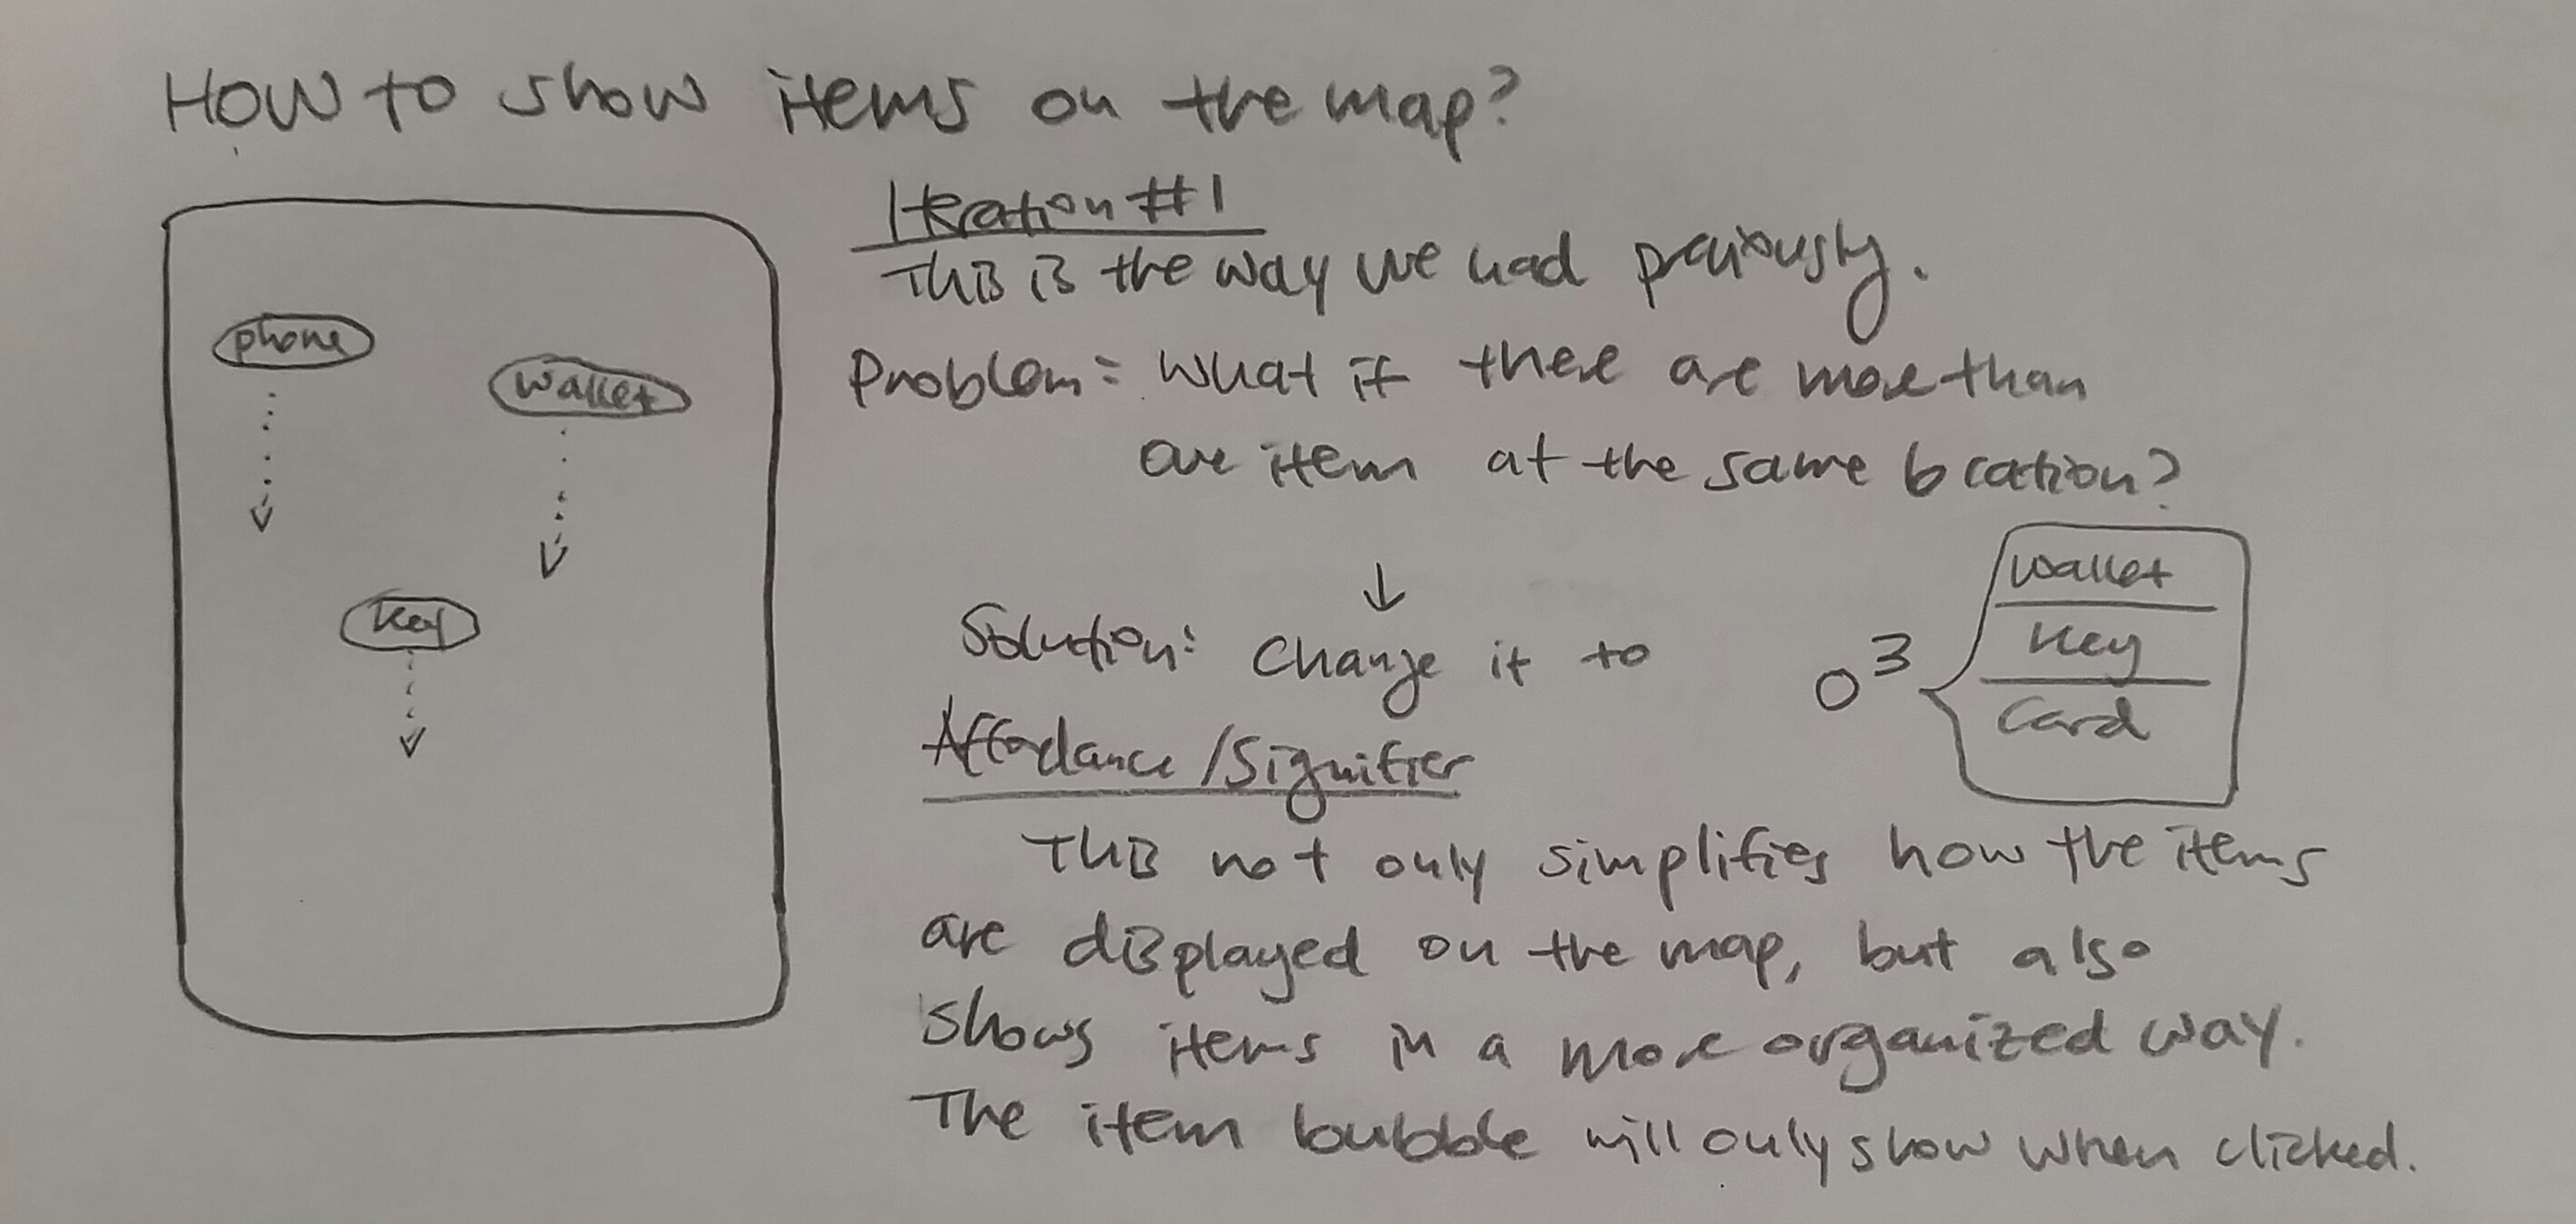 How to show items on the map?
Iteration #1
This is the way we had previously.
Problem: What if there are more than
one item at the same location?
phone
wallet
key
↓
Solution: Change it to
o3
wallet
key
card
Affordance/Signifier
This not only simplifies how the items
are displayed on the map, but also
shows items in a more organized way.
The item bubble will only show when clicked.